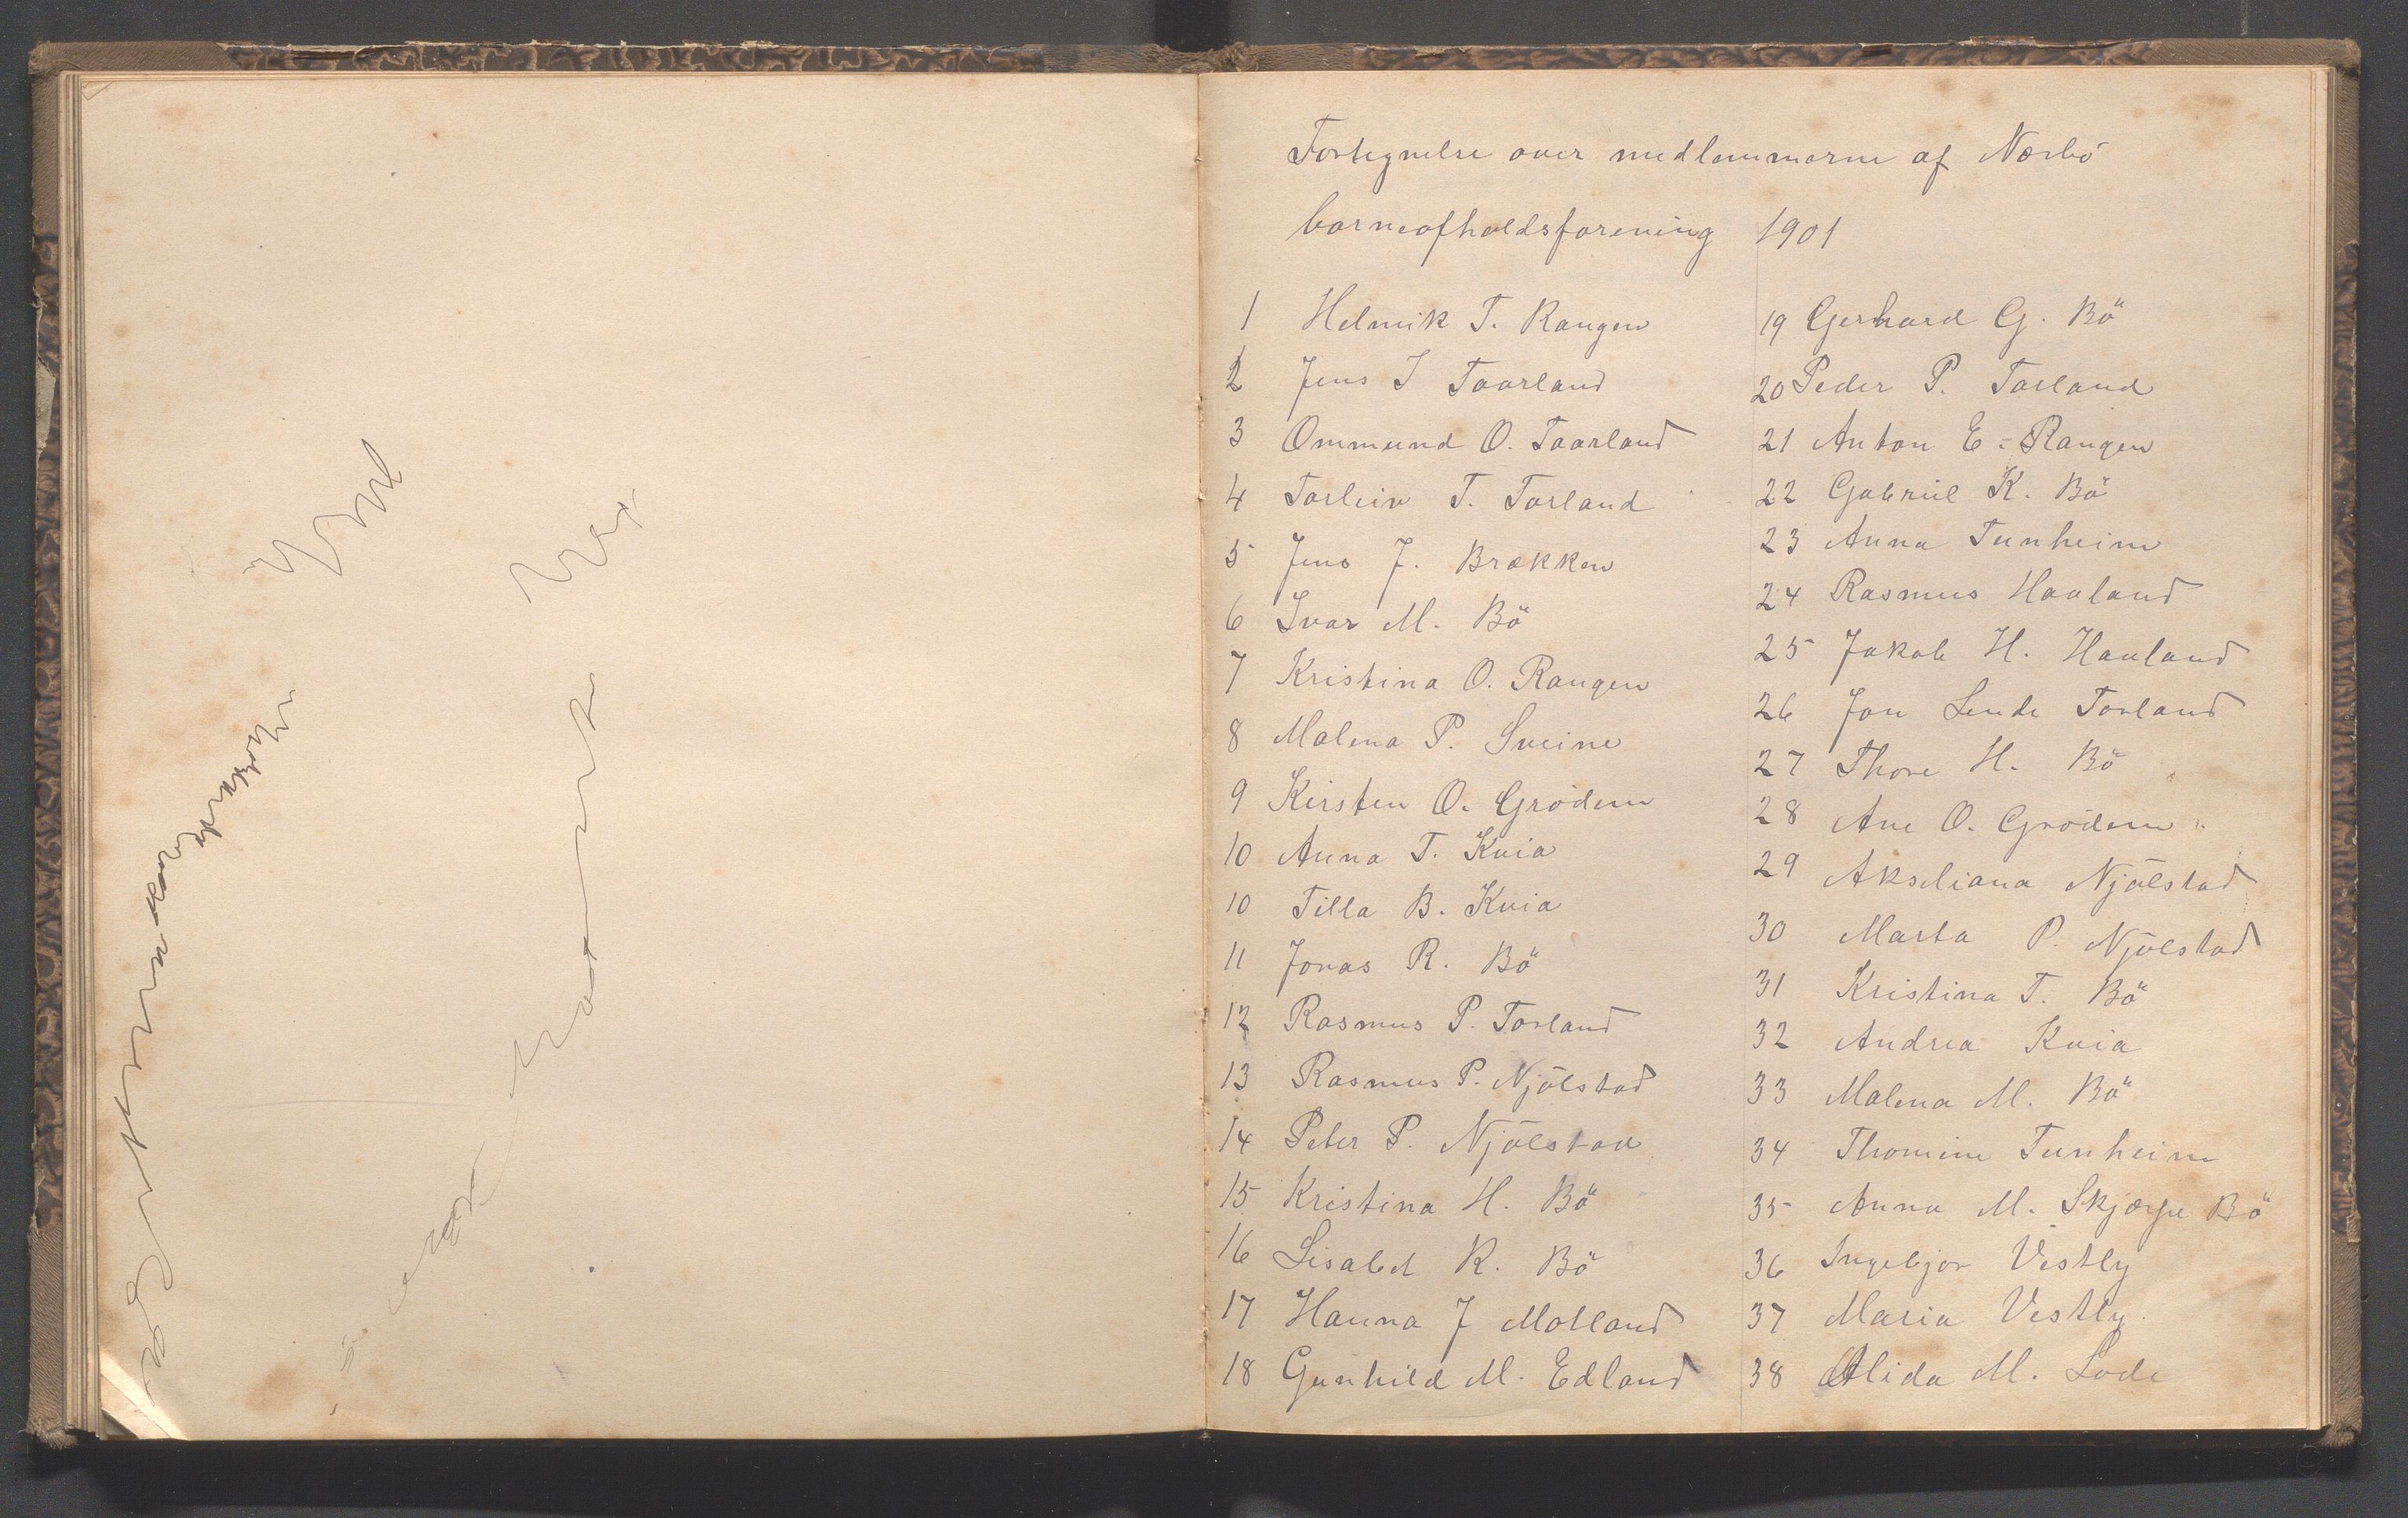 Fortegnelse over medlemmerne af Nærbö
barneafholdsforening 1901
1 Helmik T. Rangen
2 Jens J Taarland
3 Ommund O. Taarland
4 Torleiv T. Torland
5 Jens J. Brækken
6 Ivar M. Bö
7 Kristina O. Rangen
8 Malena P. Sveine
9 Kirsten O. Grödem
10 Anna T. Kvia
10 Tilla B. Kvia
11 Jonas R. Bö
12 Rasmus P. Torland
13 Rasmus P. Njölstad
14 Peter P. Njölstad
15 Kristina H. Bö
16 Lisabet R. Bö
17 Hanna J Motland
18 Gunhild M. Edland
19 Gerhard G. Bö
20 Peder P. Torland
21 Anton E. Rangen
22 Gabriel K. Bö
23 Anna Tunheim
24 Rasmus Haaland
25 Jakob H. Haaland
26 Jon Lende Torland
27 Thore H. Bö
28 Ane O. Grödem
29 Akseliana Njölstad
30 Marta P. Njölstad
31 Kristina T. Bö
32 Andrea Kvia
33 Malena M. Bö
34 Thomine Tunheim
35 Anna M. Skjærpe Bö
36 Ingebjor Vestly
37 Maria Vestly.
38 Alida M. Lode